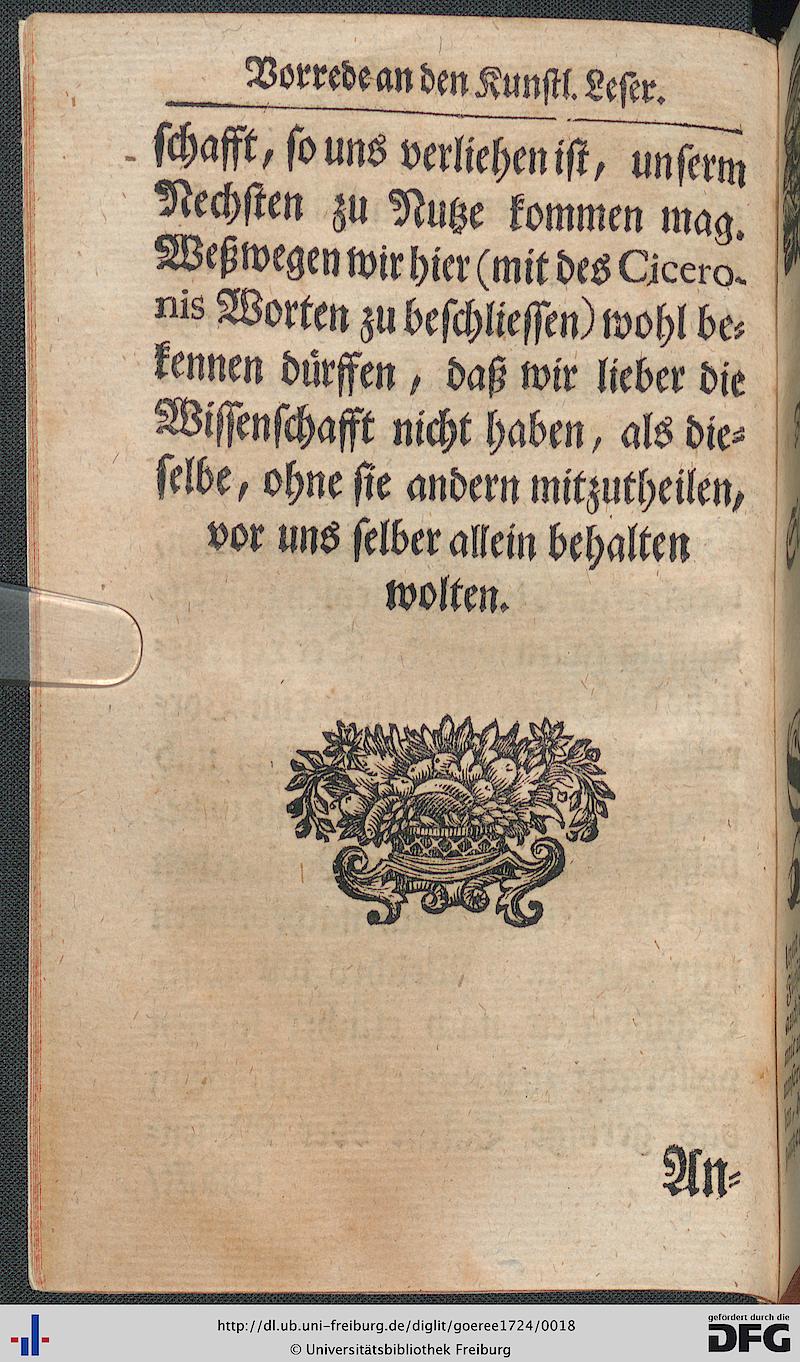 Vorrede an den Kunstl. Leser.
schafft, so uns verliehen ist, unserm
Nechsten zu Nutze kommen mag.
Weßwegen wir hier (mit des Cicero-
nis Worten zu beschliessen) wohl be-
kennen dürffen, daß wir lieber die
Wissenschafft nicht haben, als die-
selbe, ohne sie andern mitzutheilen,
vor uns selber allein behalten
wolten.
An-
http://dl.ub.uni-freiburg.de/diglit/goeree1724/0018
© Universitätsbibliothek Freiburg
gefördert durch die
DFG